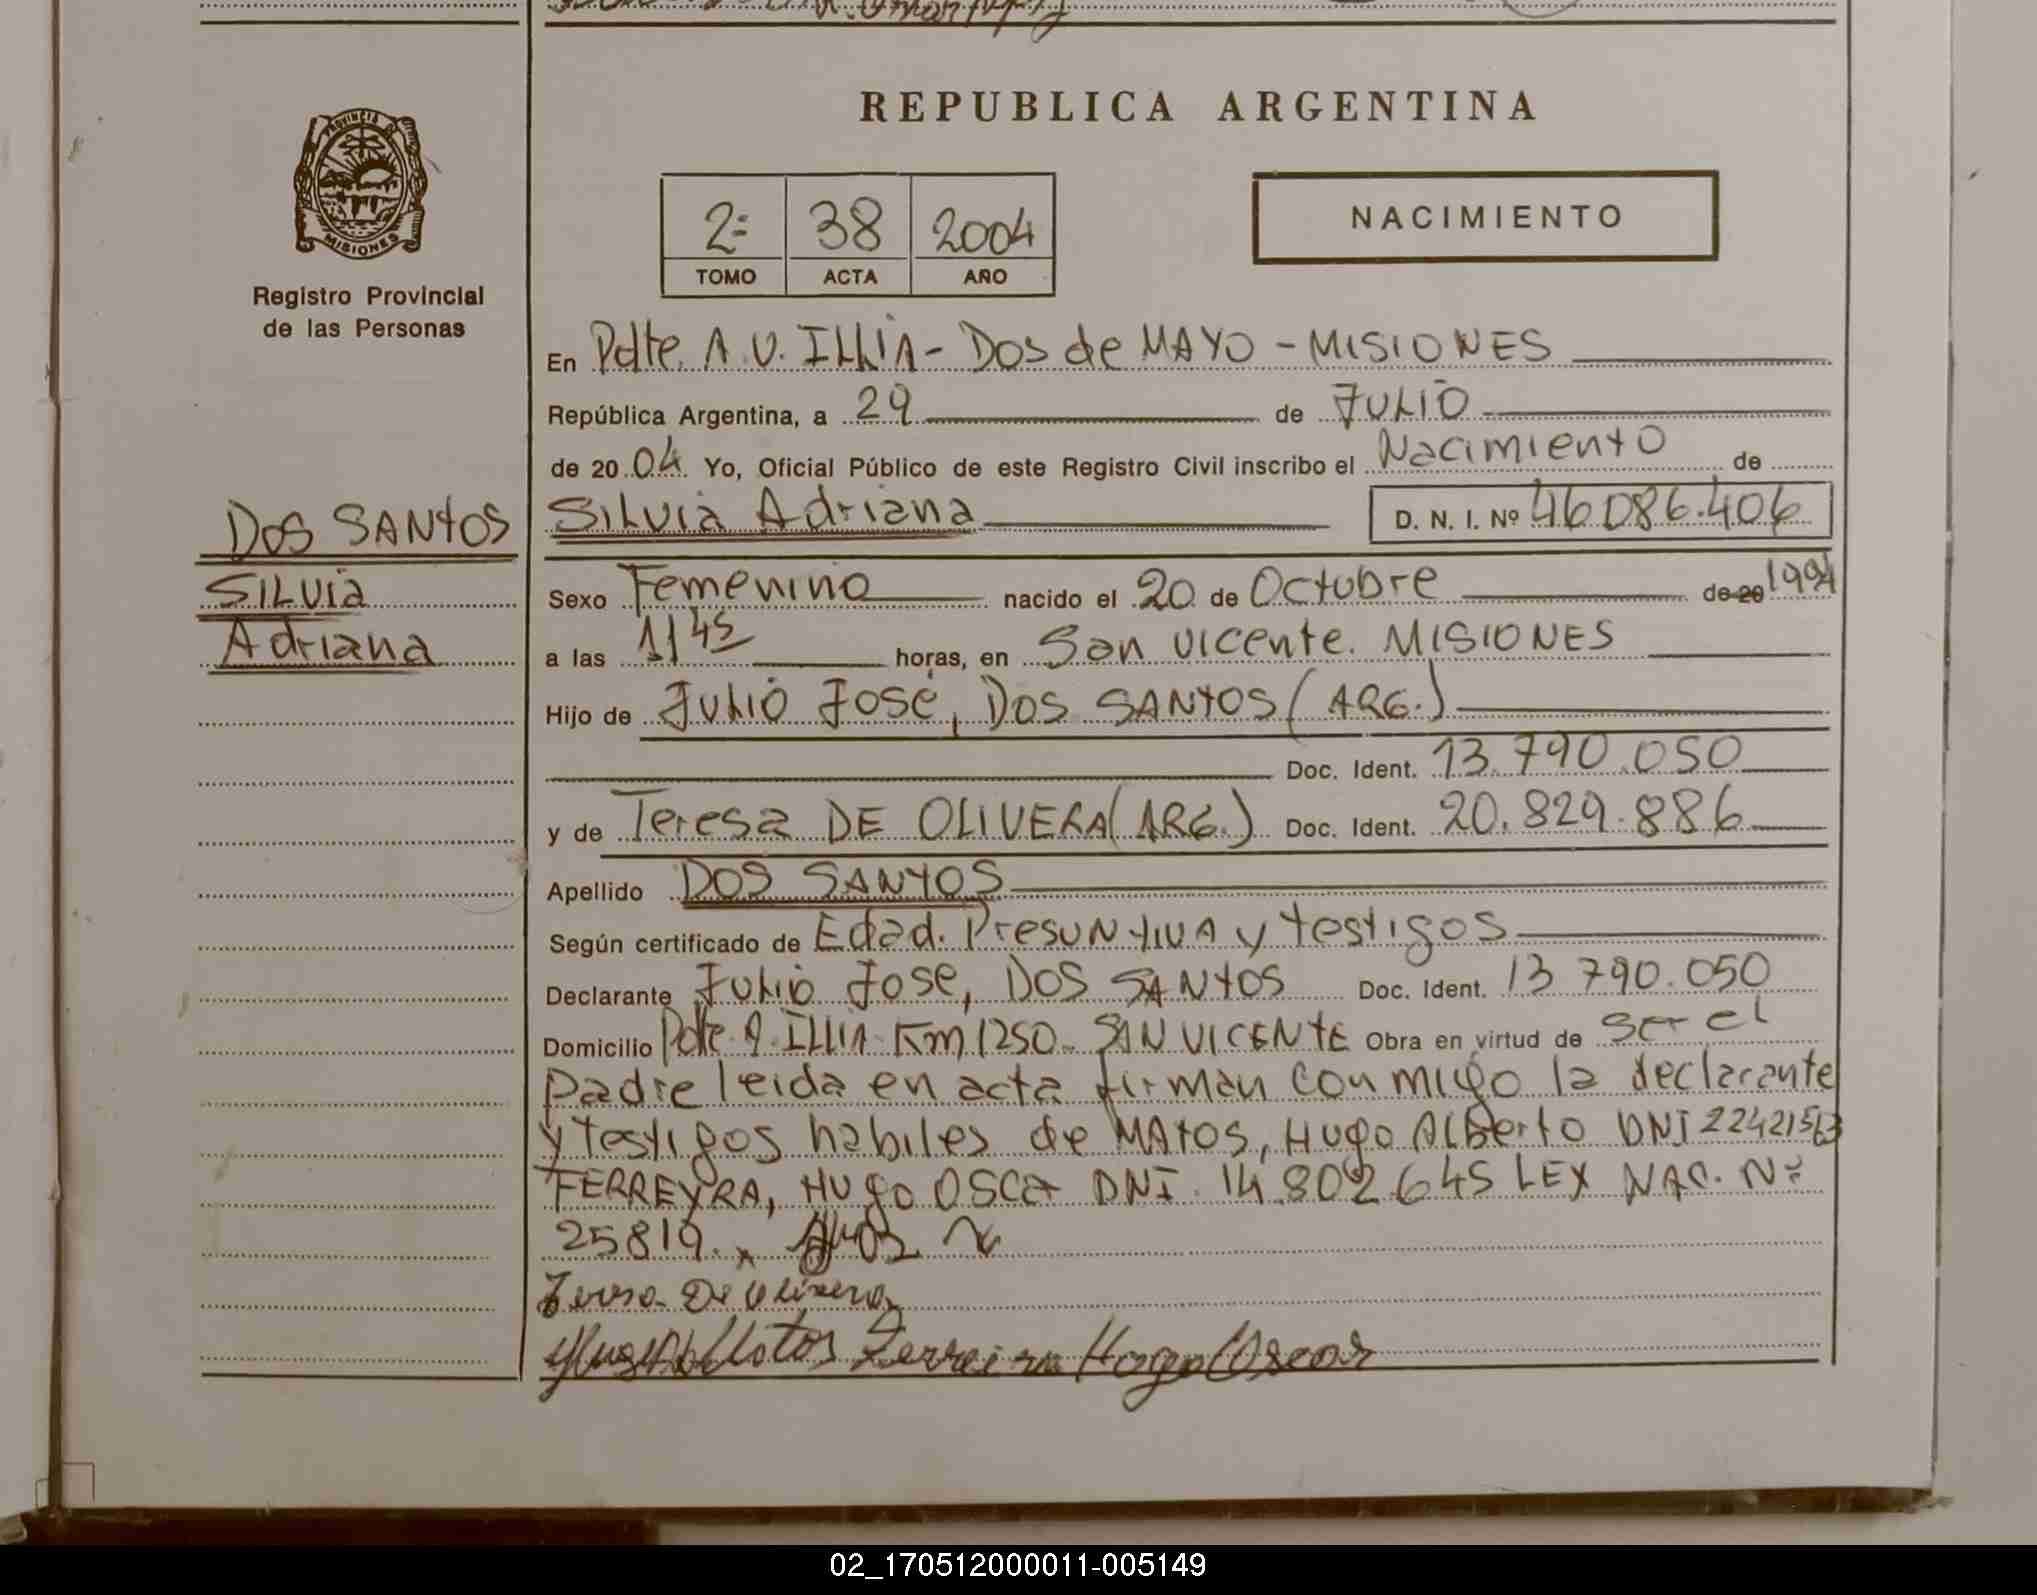 REPUBLICA ARGENTINA
PROVINCIA DE MISIONES
Registro Provincial
de las Personas
2º 38 2004
TOMO ACTA AÑO
NACIMIENTO
En Pdte. A. U. ILLIA - DOS de MAYO - MISIONES
República Argentina, a 29 de JULIO
de 20 04 Yo, Oficial Público de este Registro Civil inscribo el Nacimiento de
Silvia Adriana D. N. I. Nº 46 086.406
DOS SANTOS
SILVIA
Adriana
Sexo Femenino nacido el 20 de Octubre de 20 1994
a las 11 45 horas, en San Vicente. MISIONES
Hijo de Julio José, DOS SANTOS (ARG.)
Doc. Ident. 13.790.050
y de Teresa DE OLIVERA (ARG.) Doc. Ident. 20.829.886
Apellido DOS SANTOS
Según certificado de Edad. Presuntiva y testigos
Declarante Julio Jose, DOS SANTOS Doc. Ident. 13 790.050
Domicilio Pdte. A. ILLIA Km 1250 - SAN VICENTE Obra en virtud de ser el
padre leida en acta firman conmigo la declarante
y testigos habiles de MATOS, Hugo Alberto DNI 22421563
FERREYRA, Hugo Oscar DNI. 14.802.645 LEX NAC. Nº
25819.
Teresa De Olivera
Matos Ferreira Hugo Oscar
02_170512000011-005149